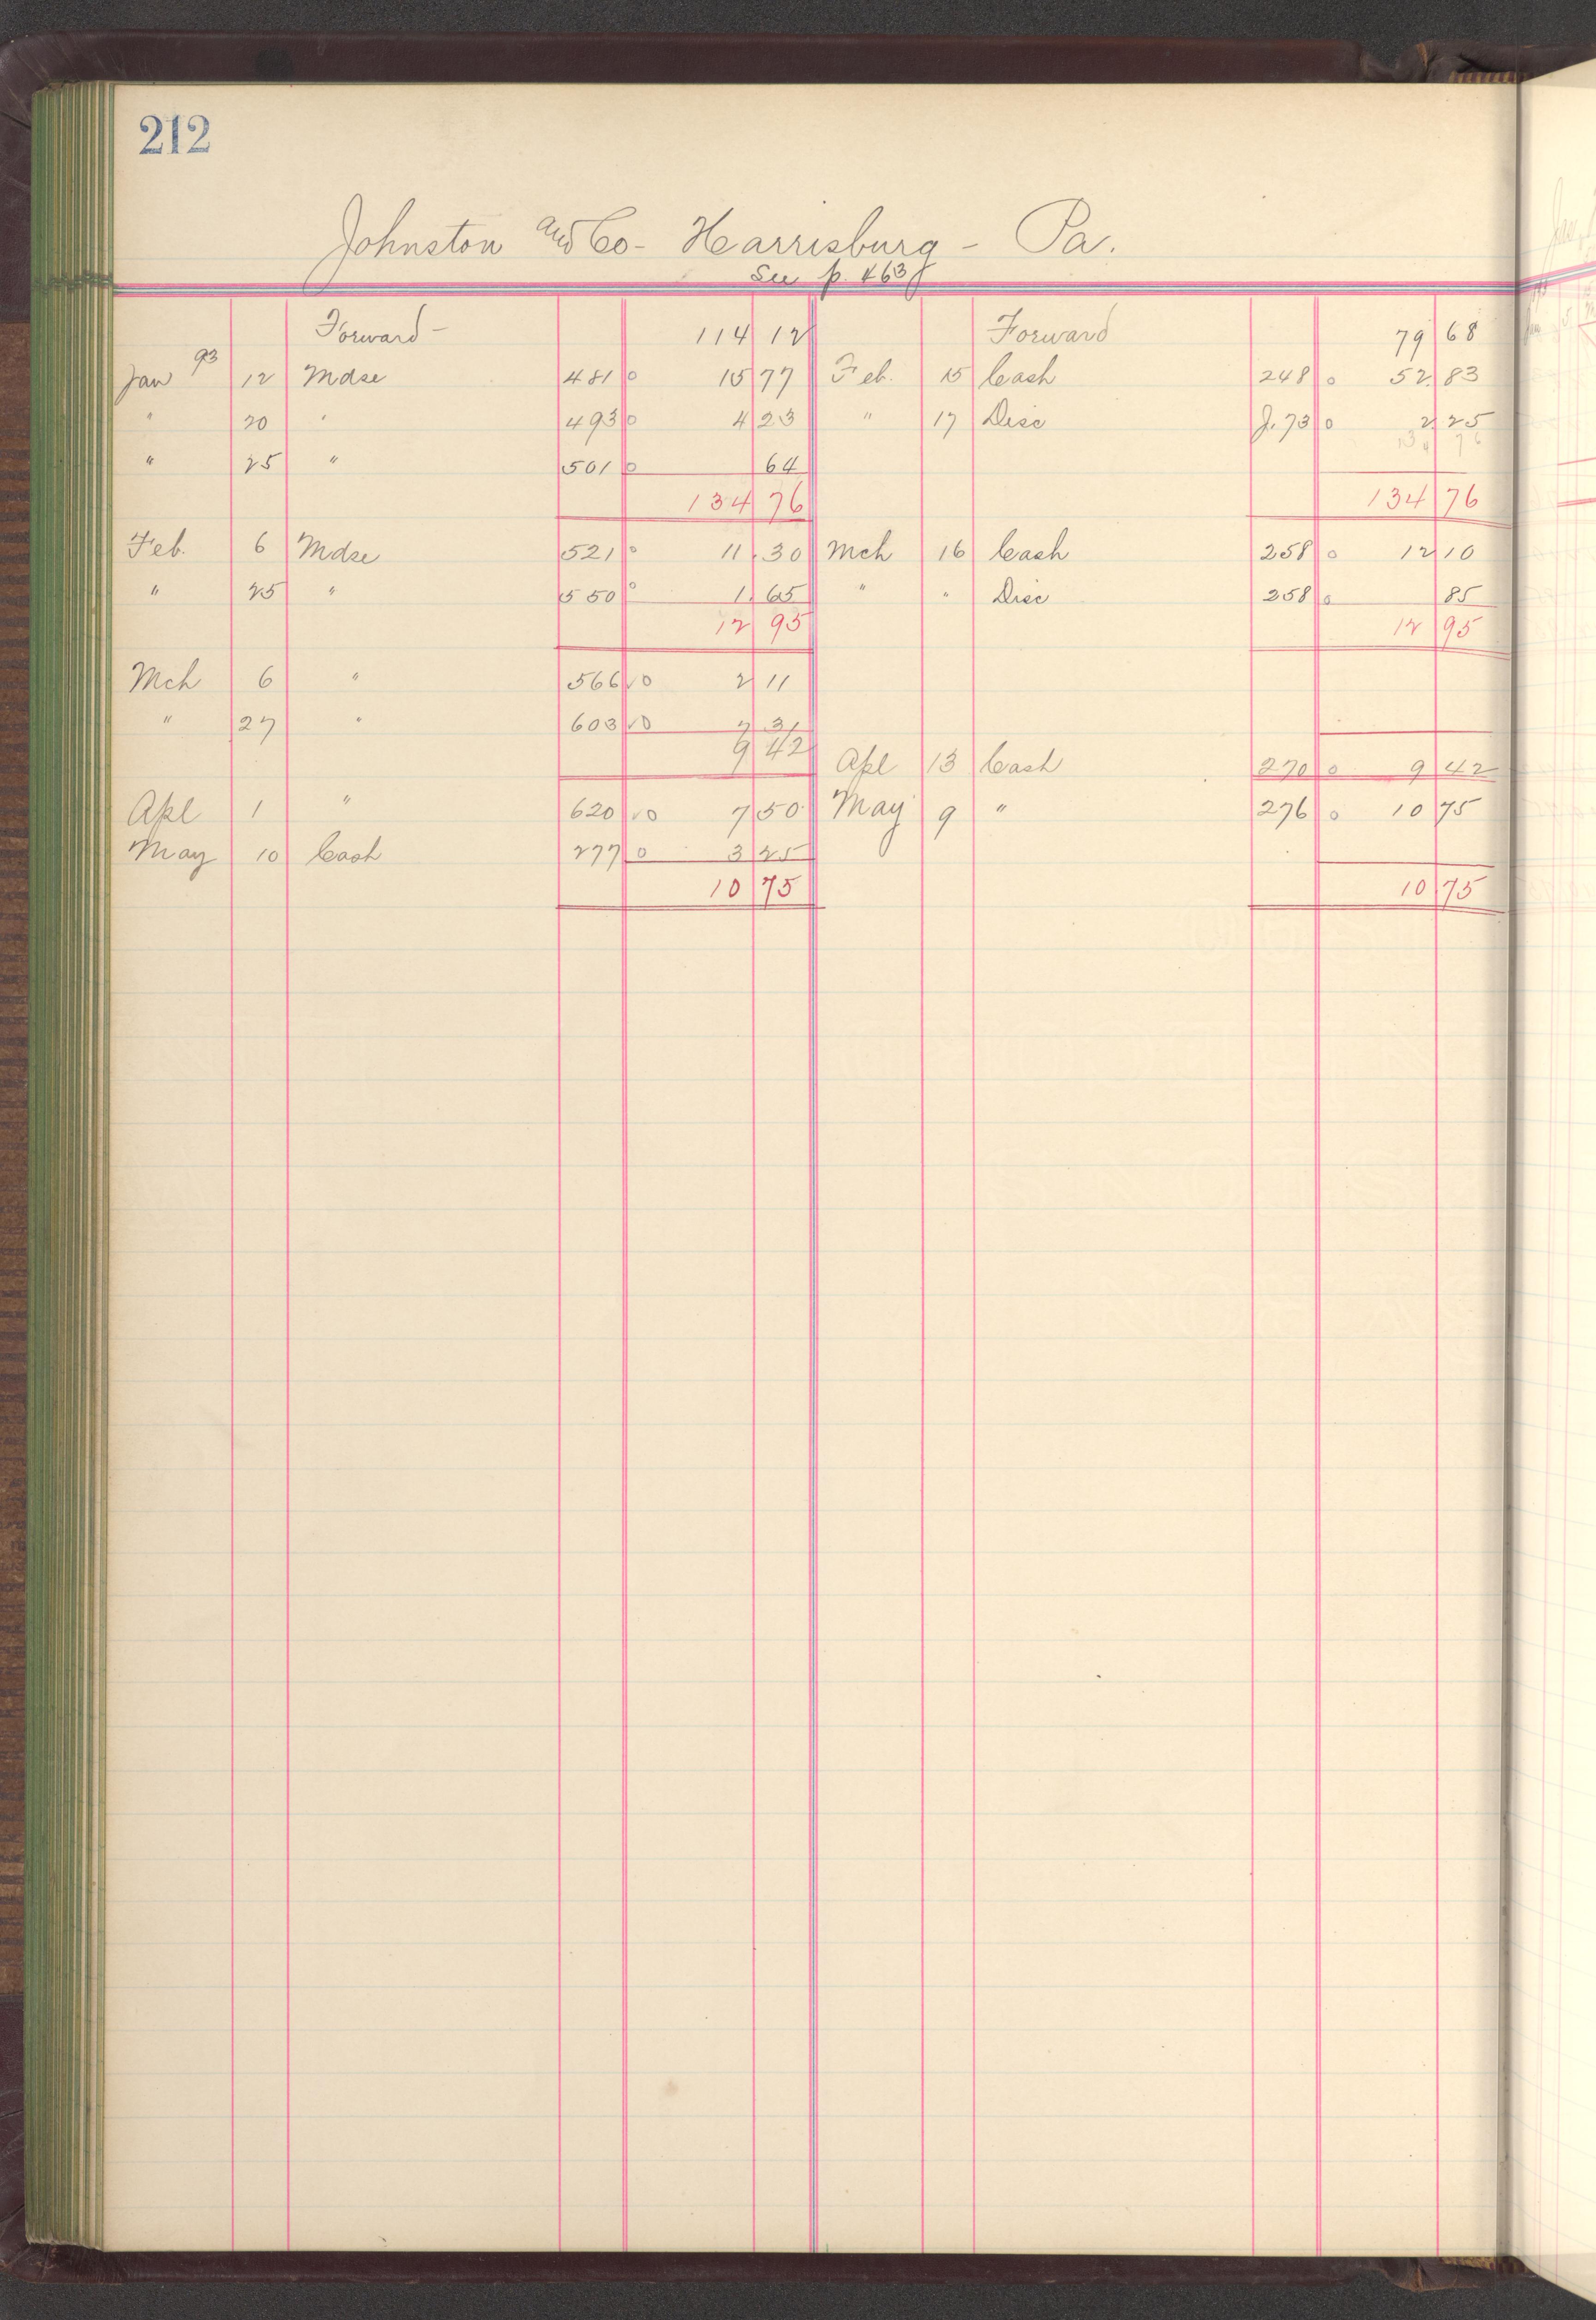 212
Johnston and Co - Harrisburg - Pa.
See p. 463
Forward - 114 12 Forward 79 68
Jan 93 12 Mdse 481 0 15 77 Feb. 15 Cash 248 0 52 83
" 20 " 493 0 4 23 " 17 Disc J. 73 0 2 25
" 25 " 501 0 64 134 76
134 76 134 76
Feb. 6 Mdse 521 0 11 30 Mch 16 Cash 258 0 12 10
" 25 " 550 0 1 65 " " Disc 258 0 85
12 95 12 95
Mch 6 " 566 0 2 11
" 27 " 603 0 7 31
9 42
Apl 13 Cash 270 0 9 42
Apl 1 " 620 0 7 50 May 9 " 276 0 10 75
May 10 Cash 277 0 3 25
10 75 10 75